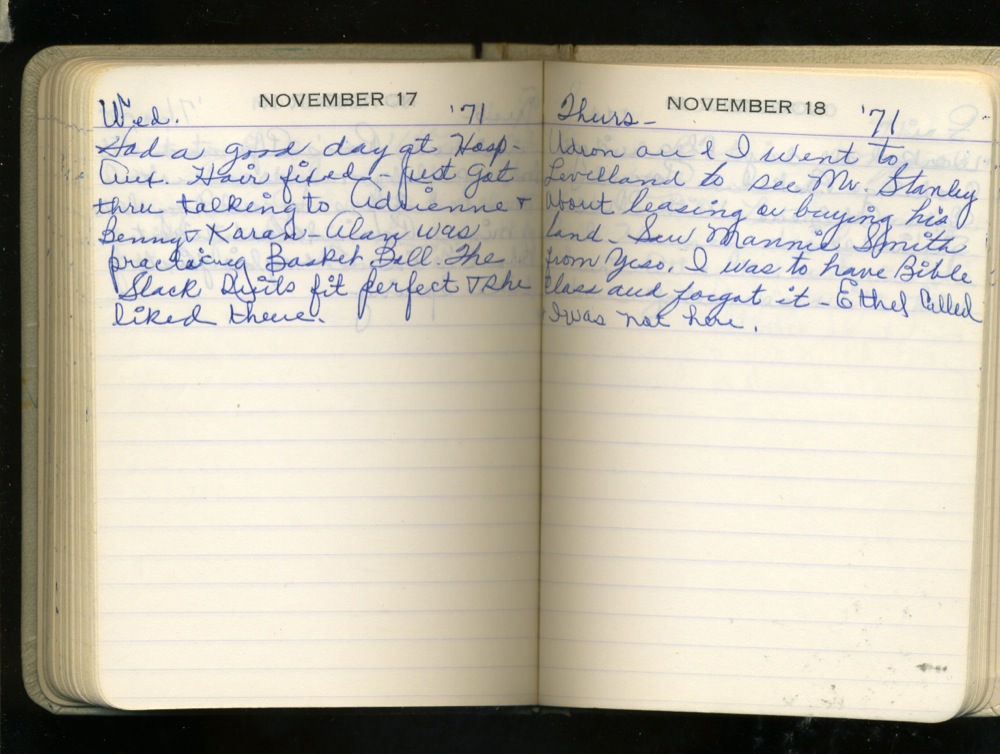 NOVEMBER 17
Wed. '71
Had a good day at Hosp-
Aux. Hair fixed - just got
thru talking to Adrienne &
Benny & Karan - Alan was
practicing Basket Ball. The
Slack Suits fit perfect & she
liked them.
NOVEMBER 18
Thurs- '71
and I went to
Levelland to see Mr. Stanley
about leasing or buying his
land - Saw Mannie Smith
from Yeso. I was to have Bible
class and forgot it - Ethel Called
I was not here.